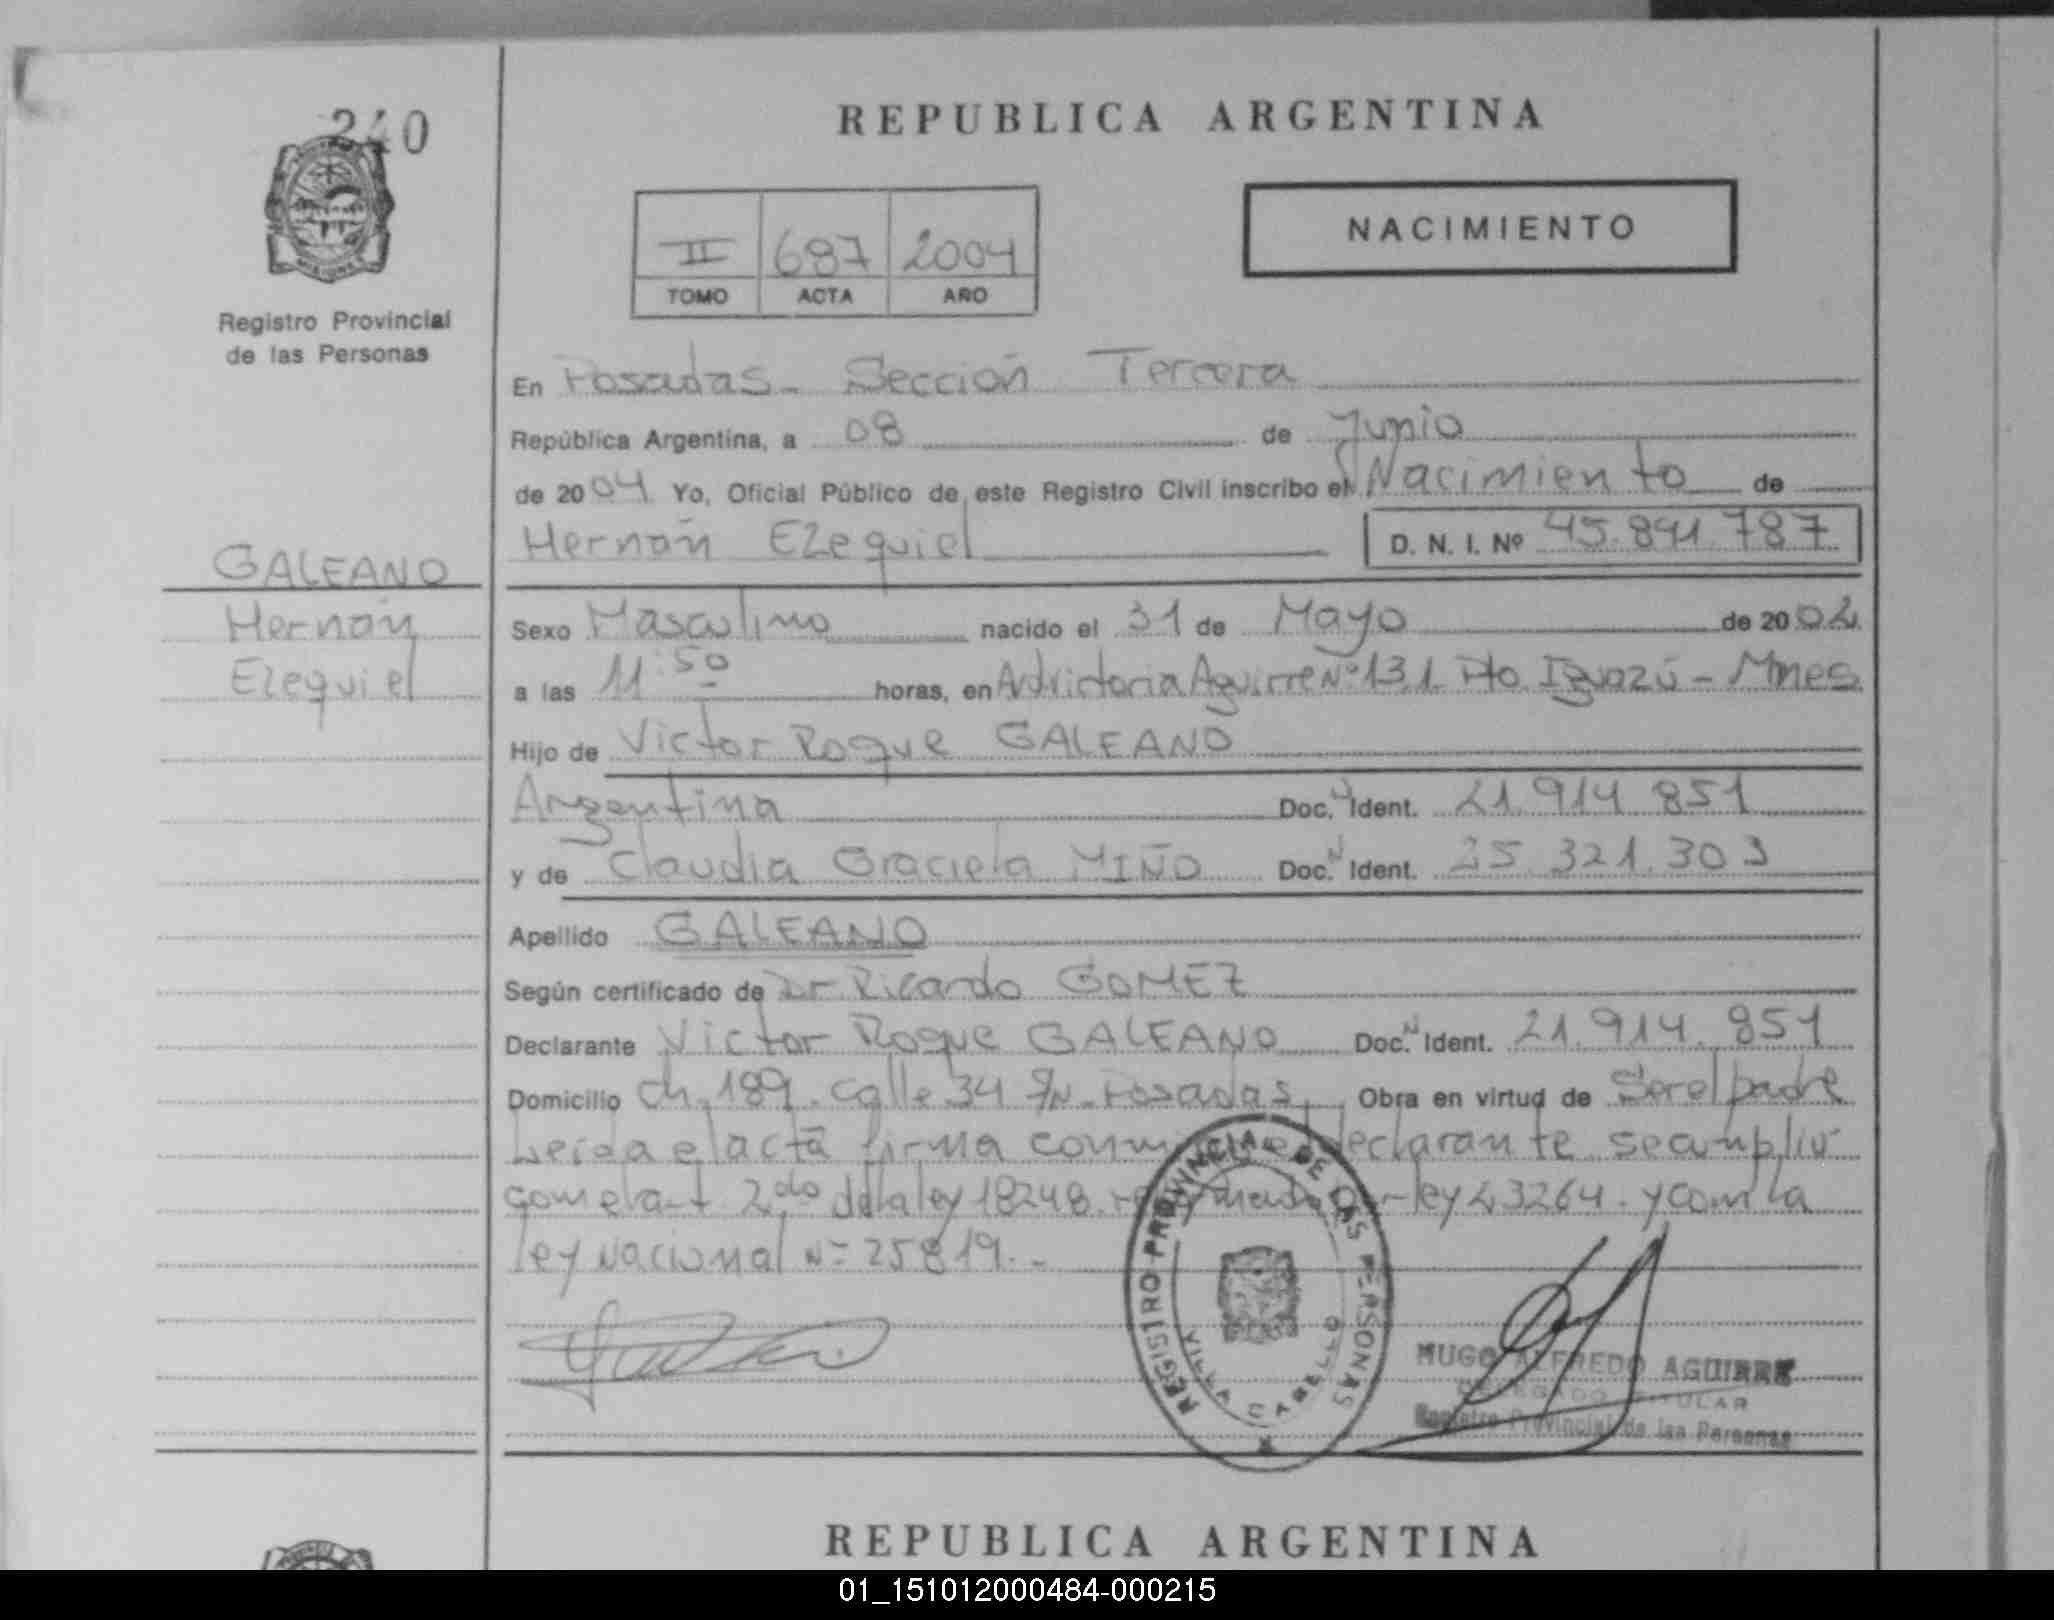 240
REPUBLICA ARGENTINA
NACIMIENTO
II 687 2004
TOMO ACTA AÑO
Registro Provincial
de las Personas
En Posadas - Sección Tercera
República Argentina, a 08 de Junio
de 2004 Yo, Oficial Público de este Registro Civil inscribo el Nacimiento de
Hernán Ezequiel D. N. I. Nº 45.891.787
GALEANO
Hernán
Ezequiel
Sexo Masculino nacido el 31 de Mayo de 2002
a las 11:50 horas, en Av Victoria Aguirre Nº 131 Pto. Iguazú - Mnes
Hijo de Victor Roque GALEANO
Argentina Doc. N Ident. 21.914 851
y de Claudia Graciela MIÑO Doc. N Ident. 25.321.303
Apellido GALEANO
Según certificado de Dr Ricardo GOMEZ
Declarante Victor Roque GALEANO Doc. N Ident. 21.914.851
Domicilio Ch. 189. Calle 34 S/N. Posadas Obra en virtud de Ser el padre
Leida el acta firma conmigo el declarante se cumplió
con el art 2do de la ley 18248. reformada por ley 23264. y con la
ley Nacional Nº 25819.-
REGISTRO PROVINCIAL DE LAS PERSONAS
VILLA CABELLO
HUGO ALFREDO AGUIRRE
DELEGADO TITULAR
Registro Provincial de las Personas
REPUBLICA ARGENTINA
01_151012000484-000215